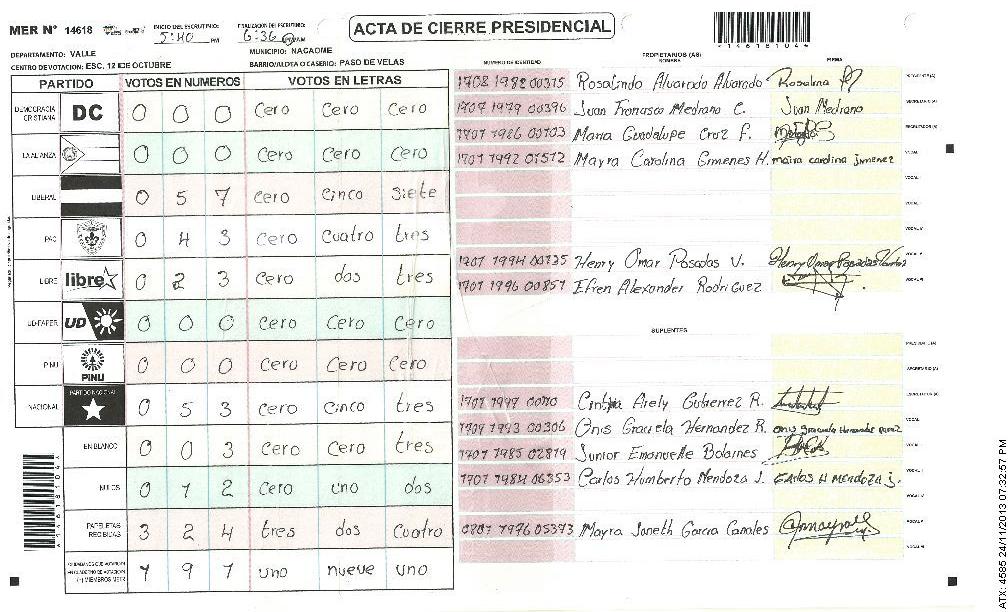 MER Nº 14618 INICIO DEL ESCRUTINIO: 5:40 PM FINALIZACION DEL ESCRUTINIO: 6:36 PM/AM
ACTA DE CIERRE PRESIDENCIAL
*146181044*
DEPARTAMENTO: VALLE MUNICIPIO: NACAOME
CENTRO DE VOTACION: ESC. 12 DE OCTUBRE BARRIO/ALDEA O CASERIO: PASO DE VELAS
PARTIDO VOTOS EN NUMEROS VOTOS EN LETRAS
DEMOCRACIA CRISTIANA DC 0 0 0 Cero Cero Cero
LA ALIANZA 0 0 0 Cero Cero Cero
LIBERAL 0 5 7 Cero Cinco Siete
PAC 0 4 3 Cero Cuatro tres
LIBRE libre 0 2 3 Cero dos tres
UD-FAPER UD 0 0 0 Cero Cero Cero
PINU PINU 0 0 0 Cero Cero Cero
NACIONAL PARTIDO NACIONAL 0 5 3 Cero Cinco tres
EN BLANCO 0 0 3 Cero Cero tres
NULOS 0 1 2 Cero uno dos
PAPELETAS RECIBIDAS 3 2 4 tres dos Cuatro
CIUDADANOS QUE VOTARON EN CUADERNO DE VOTACION (+) MIEMBROS MER 1 9 1 uno nueve uno
NUMERO DE IDENTIDAD PROPIETARIOS (AS) NOMBRE FIRMA
1708 1982 00315 Rosalindo Alvarado Alvarado Rosalina PRESIDENTE(A)
1707 1979 00396 Juan Fransisco Medrano C. Juan Medrano SECRETARIO(A)
1707 1986 00703 Maria Guadalupe Cruz F. ESCRUTADOR(A)
1707 1992 01512 Mayra Carolina Gimenes H. maira carolina jimenez VOCAL
VOCAL
VOCAL
1707 1994 00735 Henry Omar Posadas V. VOCAL
1707 1996 00857 Efren Alexander Rodriguez VOCAL
SUPLENTES
PRESIDENTE(A)
SECRETARIO(A)
Cinthia Arely Gutierrez R. ESCRUTADOR(A)
1709 1993 00306 Onis Graciela Hernandez R. VOCAL
1707 1985 02819 Junior Emanuelle Bolaines VOCAL
1707 1984 06353 Carlos Humberto Mendoza J. Carlos H Mendoza j. VOCAL
VOCAL
1976 05393 Mayra Janeth Garcia Canales VOCAL
VOCAL
*146181044*
ATX: 4585 24/11/2013 07:32:57 PM